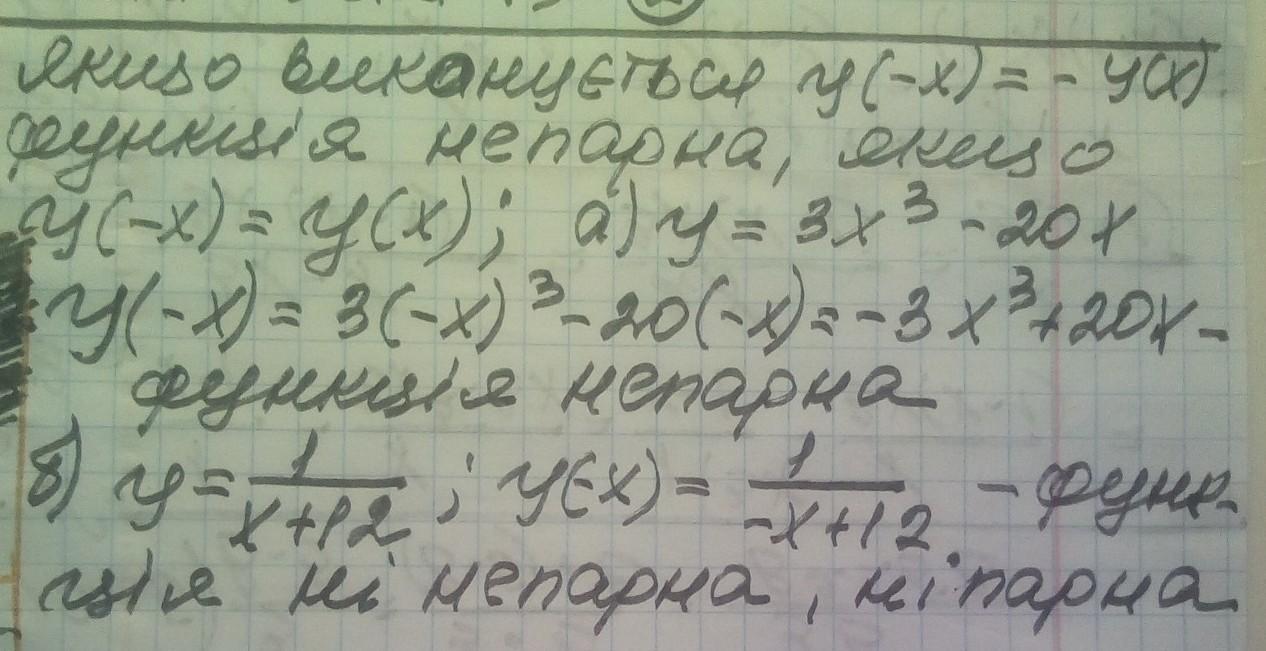 якщо виконується y(-x) = - y(x)
функція непарна, якщо
y(-x) = y(x); а) y = 3x³ - 20x
y(-x) = 3(-x)³ - 20(-x) = -3x³ + 20x -
функція непарна
б) y = 1/(x+12) ; y(-x) = 1/(-x+12) - функ-
ція ні непарна, ні парна